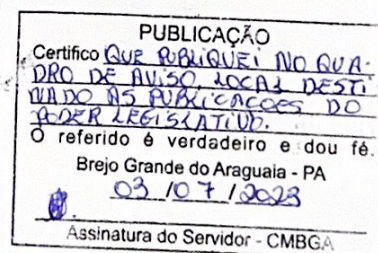 PUBLICAÇÃO
Certifico QUE PUBLIQUEI NO QUA-
DRO DE AVISO, LOCAL DESTI
NADO AS PUBLICACOES DO
PODER LEGISLATIVO.
O referido é verdadeiro e dou fé.
Brejo Grande do Araguaia - PA
03 / 07 / 2023
Assinatura do Servidor - CMBGA